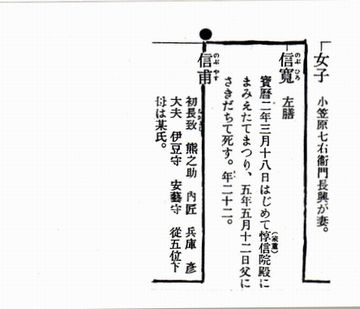 女子 小笠原七右衞門長興が妻。
信寬 のぶひろ 左膳
寶曆二年三月十八日はじめて惇信院殿(家重)に
まみえたてまつり、五年五月十二日父に
さきだちて死す。年二十二。
信甫 のぶやす
初長致 熊之助 內匠 兵庫 彥
大夫 伊豆守 安藝守 從五位下
母は某氏。